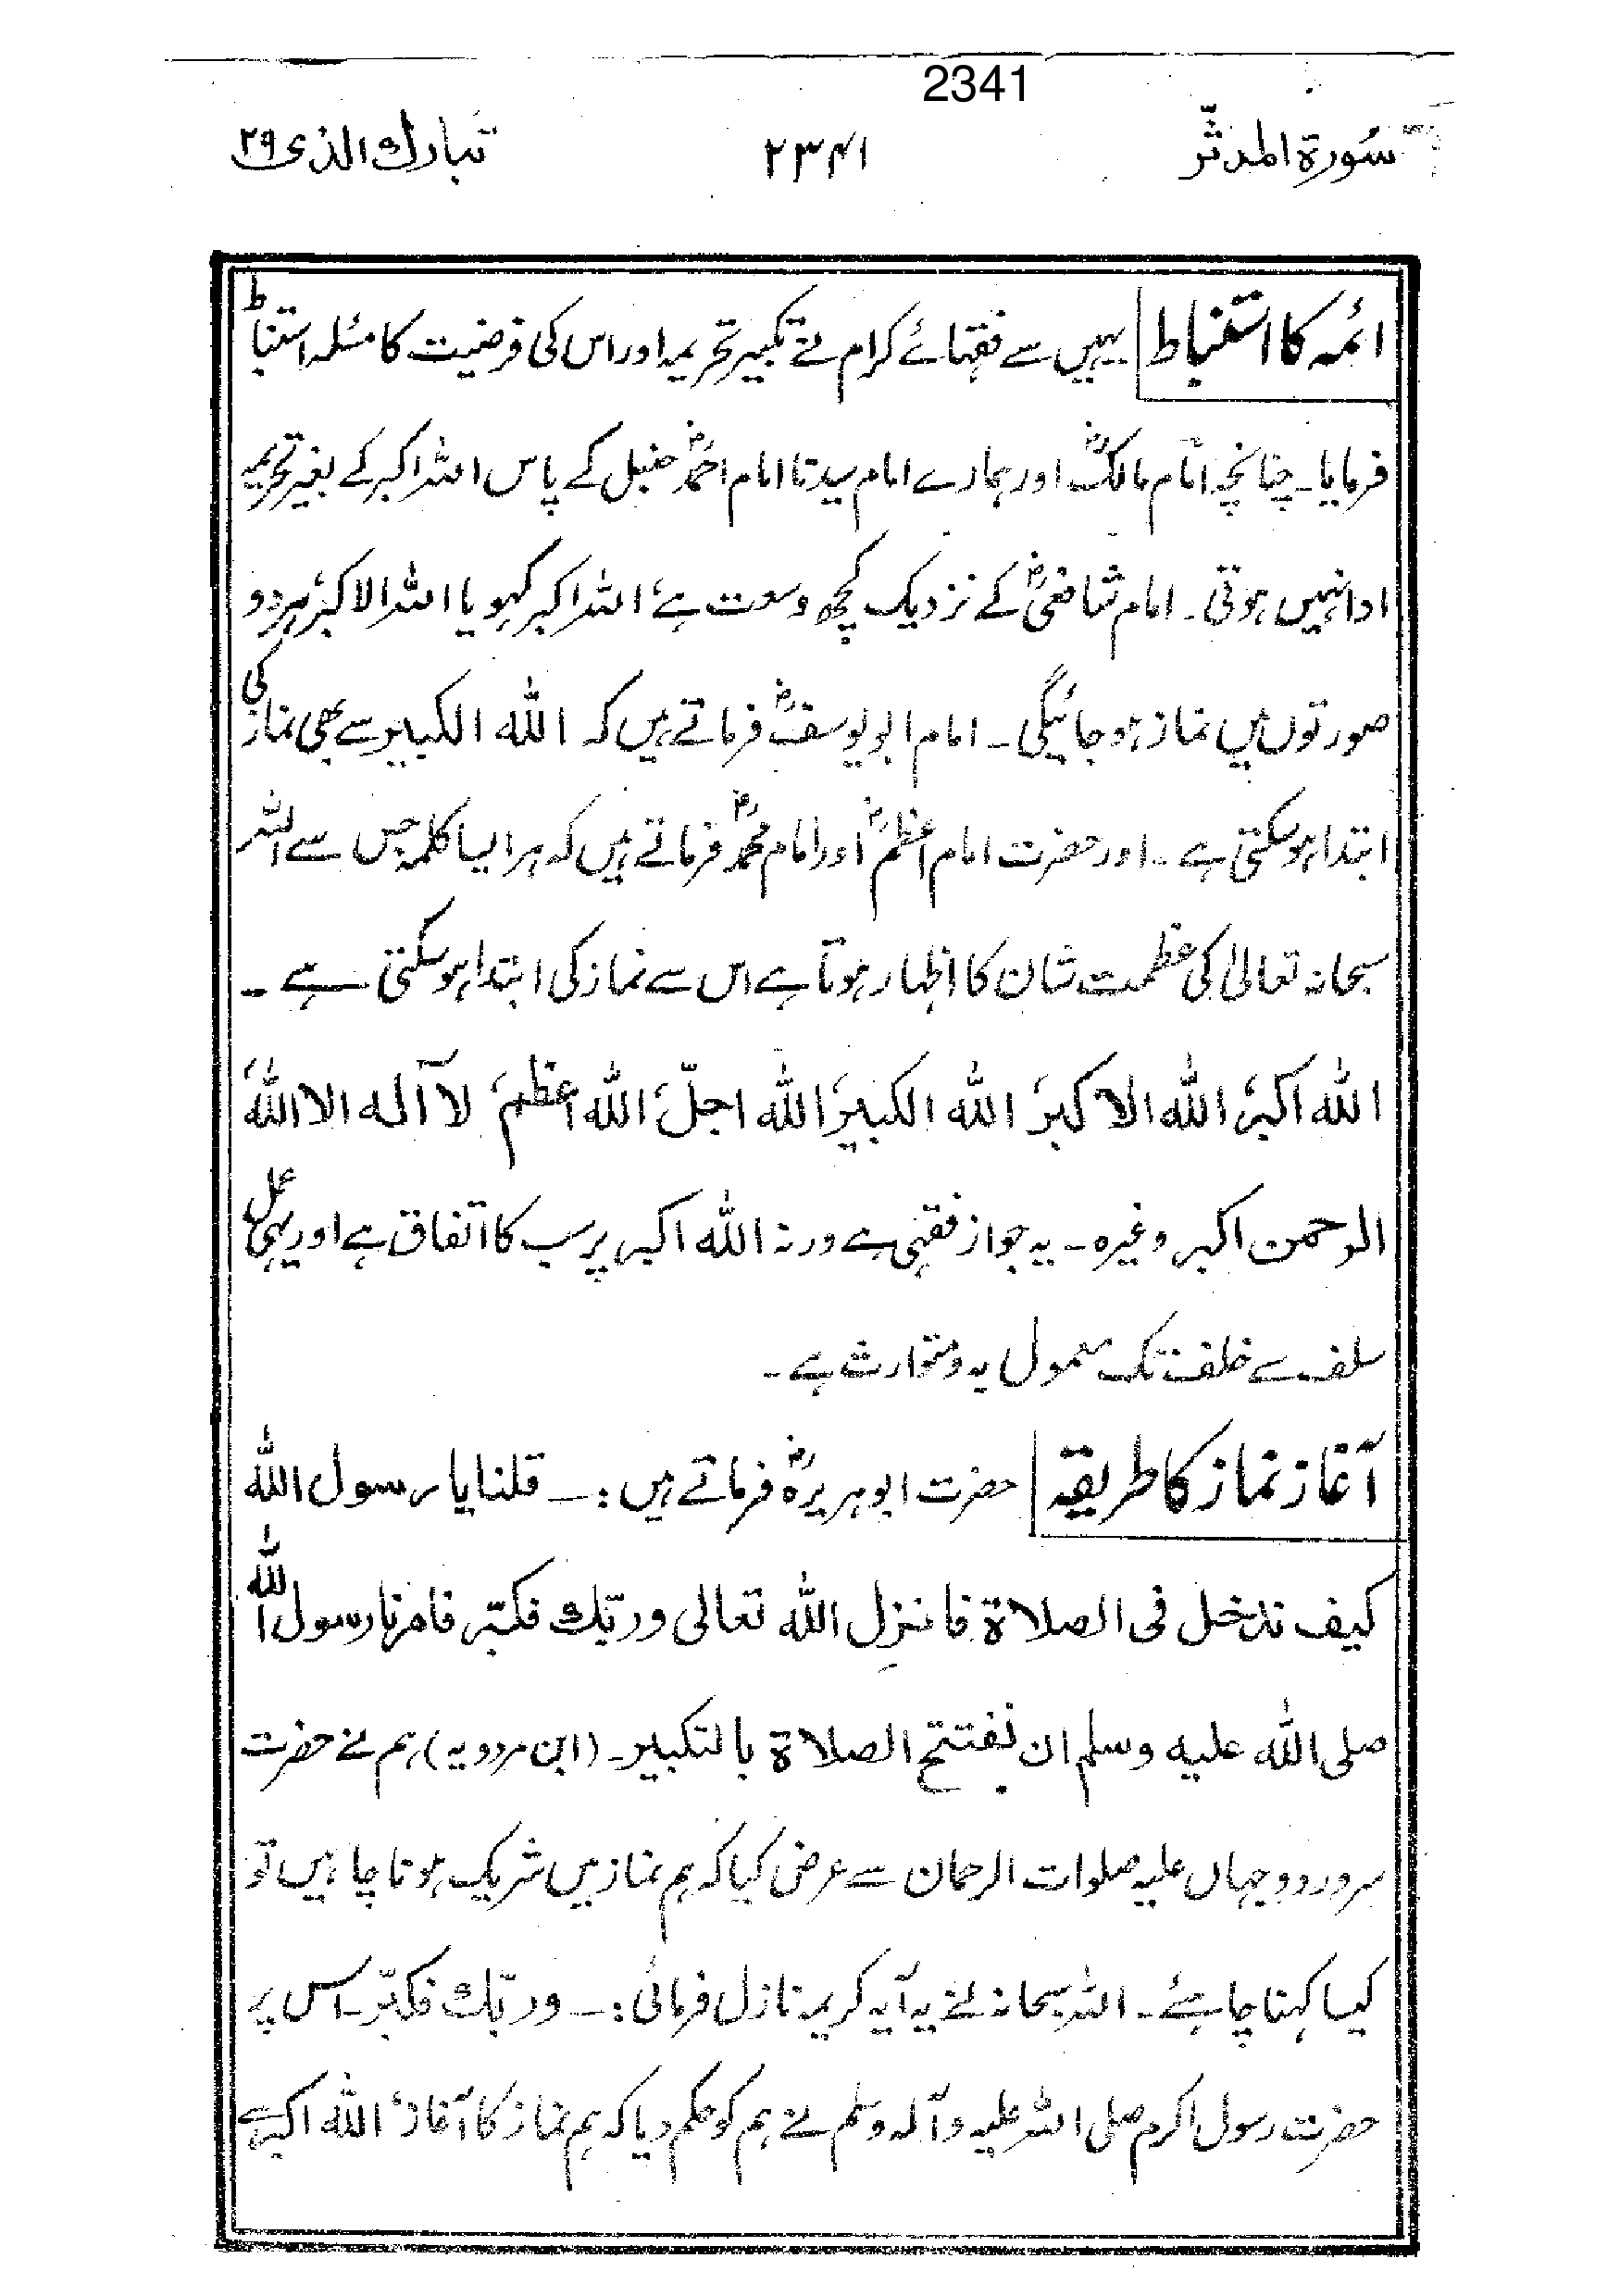 2341
سُورة المدثّر ۲۳۴۱ تبارك الذی ۲۹
ائمہ کا استنباط یہیں سے فقہائے کرام نے تکبیر تحریمہ اور اس کی فرضیت کا مسئلہ استنباط
فرمایا۔ چنانچہ امام مالکؒ اور ہمارے امام سیدنا امام احمدؒ حنبل کے پاس اللہ اکبر کے بغیر تحریمہ
ادا نہیں ہوتی۔ امام شافعیؒ کے نزدیک کچھ وسعت ہے، اللہ اکبر کہو یا اللہ الاکبر، ہر دو
صورتوں میں نماز ہو جائیگی۔ امام ابو یوسفؒ فرماتے ہیں کہ الله الکبیر سے بھی نماز کی
ابتدا ہو سکتی ہے۔ اور حضرت امام اعظمؒ اور امام محمدؒ فرماتے ہیں کہ ہر ایسا کلمہ جس سے اللہ
سبحانہ تعالیٰ کی عظمت شان کا اظہار ہوتا ہے اس سے نماز کی ابتدا ہو سکتی ہے۔
الله اکبر، الله الاکبر، الله الکبیر، الله اجلّ، الله اعظم، لآ آله الا الله،
الرحمن اکبر وغیرہ۔ یہ جواز فقہی ہے ورنہ الله اکبر پر سب کا اتفاق ہے اور یہی عمل
سلف سے خلف تک معمول بہ و متوارث ہے۔
آغاز نماز کا طریقہ حضرت ابو ہریرہؓ فرماتے ہیں :۔ قلنا یا رسول الله
کیف ندخل فی الصلاة فانزل الله تعالی وربّك فکبّر فامرنا رسول الله
صلی الله علیه وسلم ان نفتتح الصلاة بالتکبیر۔ (ابن مردویہ)، ہم نے حضرت
سرور دو جہاں علیہ صلوات الرحمان سے عرض کیا کہ ہم نماز میں شریک ہونا چاہیں تو
کیا کہنا چاہئے۔ اللہ سبحانہ نے یہ آیہ کریمہ نازل فرمائی :۔ وربّك فکبّر۔ اس پر
حضرت رسول اکرم صلی اللہ علیہ وآلہ وسلم نے ہم کو حکم دیا کہ ہم نماز کا آغاز، الله اکبر سے